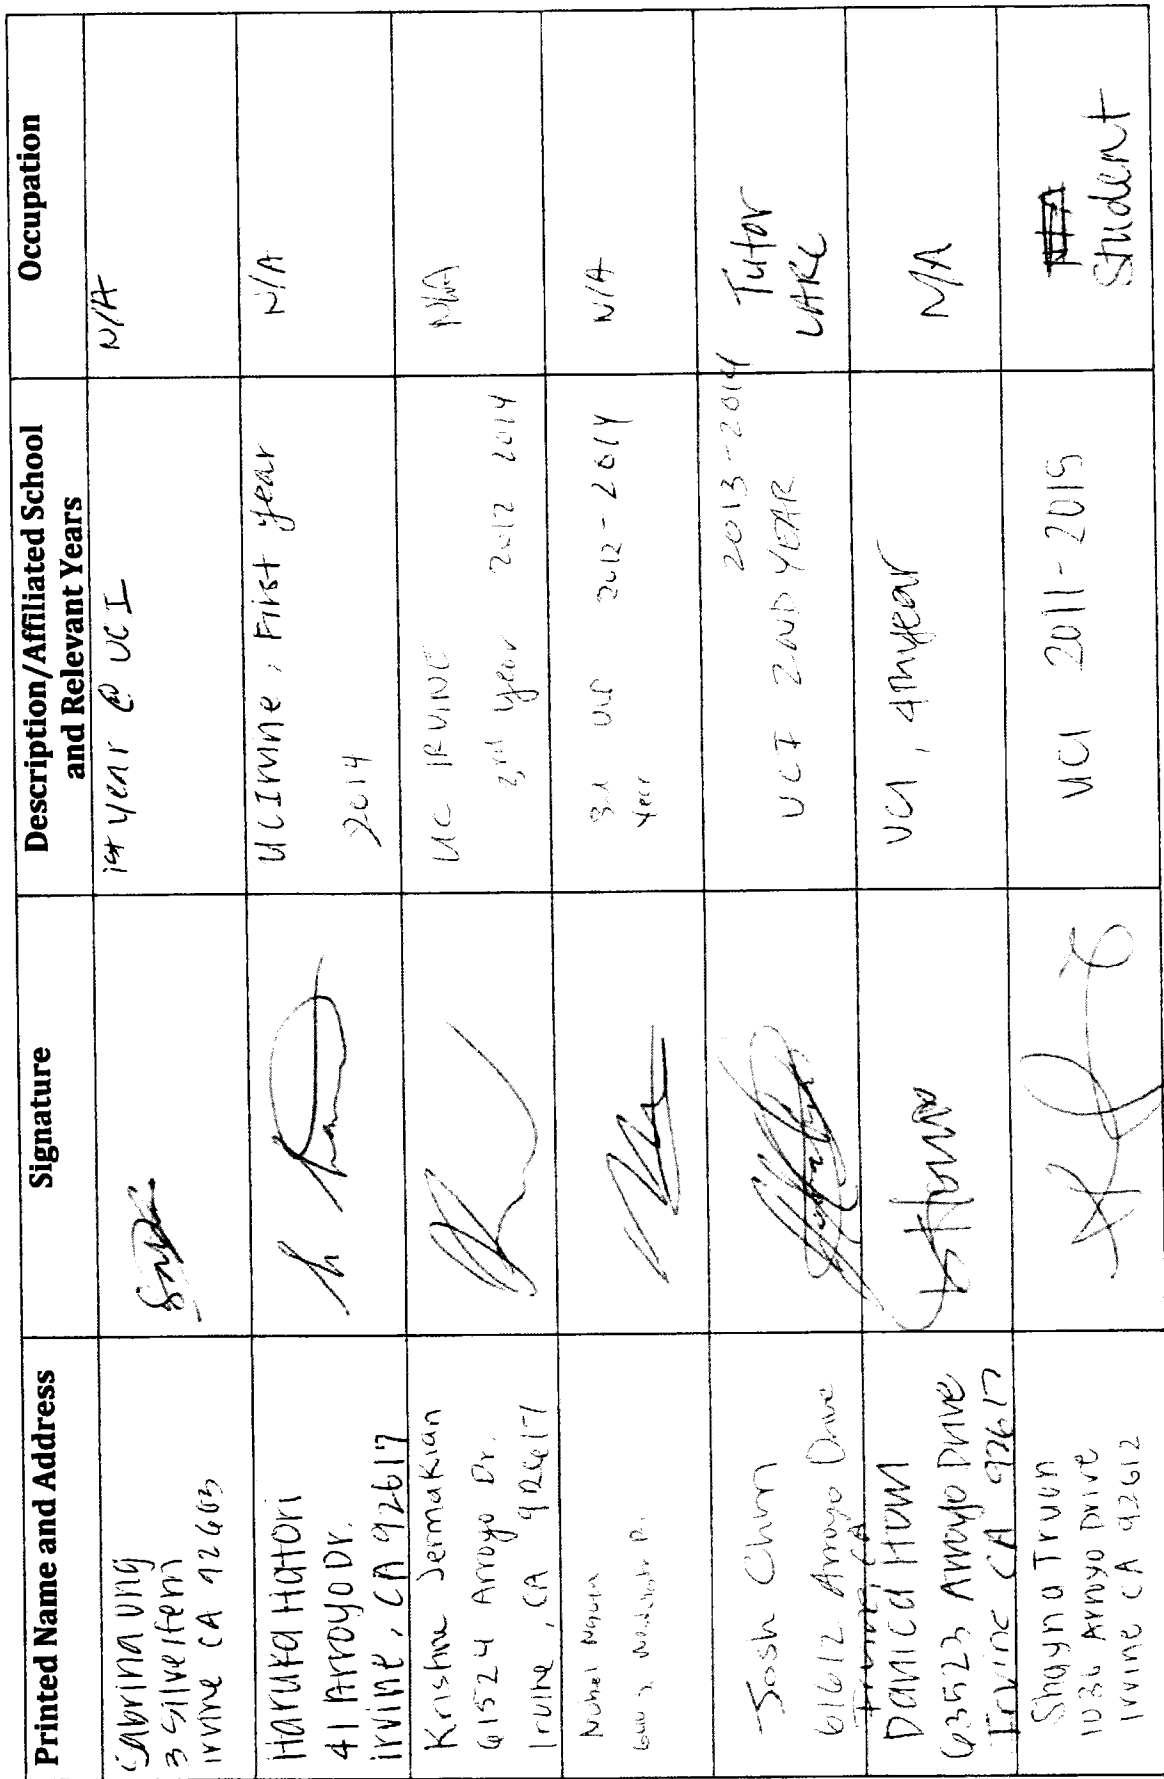 Printed Name and Address
Signature
Description/Affiliated School
and Relevant Years
Occupation
Sabrina Ung
3 Silverfern
Irvine CA 92603
1st year @ UCI
N/A
Haruka Hatori
41 Arroyo Dr.
irvine, CA 92617
UC Irvine, First year
2014
N/A
Kristine Jermakian
61524 Arroyo Dr.
Irvine, CA 92617
UC IRVINE
3rd year 2012 2014
N/A
3rd
Year
2012-2014
N/A
Josh Chun
61612 Arroyo Drive
Irvine, CA
2013-2014
UCI 2ND YEAR
Tutor
LARC
Danica Hom
63523 Arroyo Drive
Irvine CA 92617
UCI, 4th year
N/A
Shayna Truon
1036 Arroyo Drive
Irvine CA 92612
UCI 2011-2015
Student